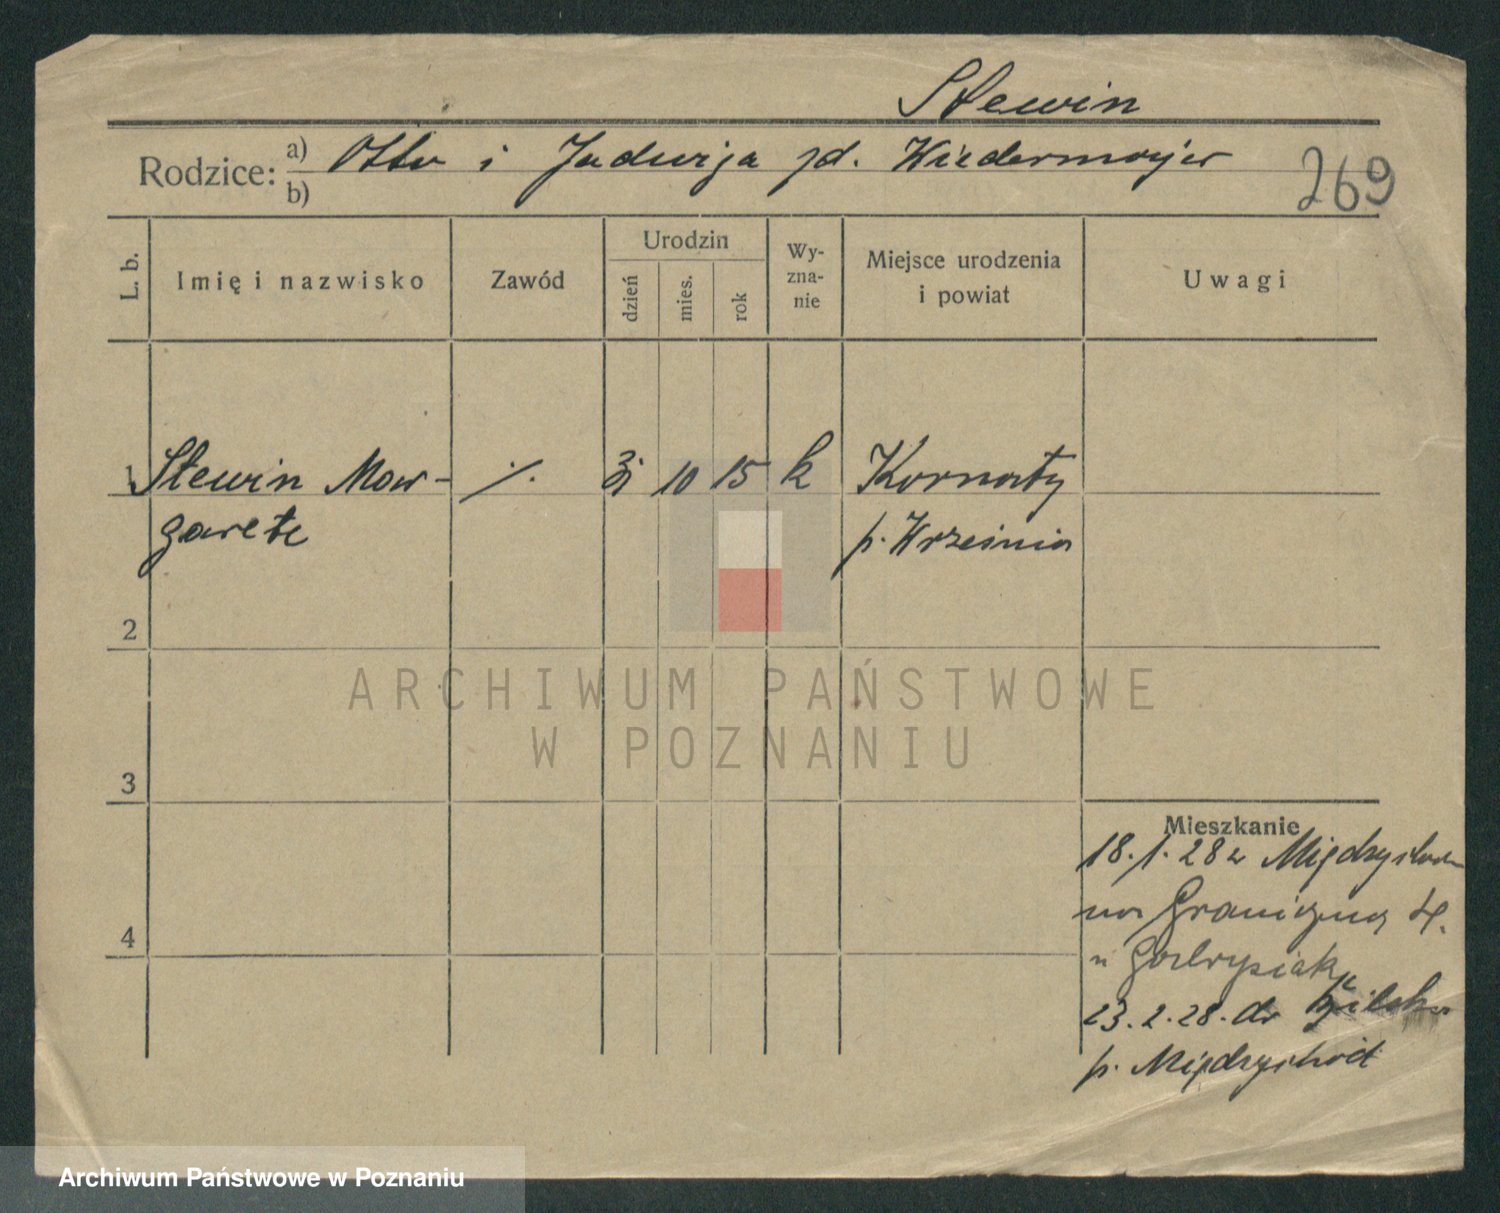 Stewin
Rodzice: a) Otto i Jadwiga zd. Wiedermayer
b)
269
L. b.
Imię i nazwisko
Zawód
Urodzin
dzień
mies.
rok
Wy-
zna-
nie
Miejsce urodzenia
i powiat
Uwagi
1 Stewin Mar- ⁒ 10 15 k Kornaty
garete p. Września
2
3
4
Mieszkanie
18.1.28 z Międzychoda
na Graniczną 4.
u Gabrysiak
23.2.28. do
p. Międzychód
ARCHIWUM PAŃSTWOWE
W POZNANIU
Archiwum Państwowe w Poznaniu